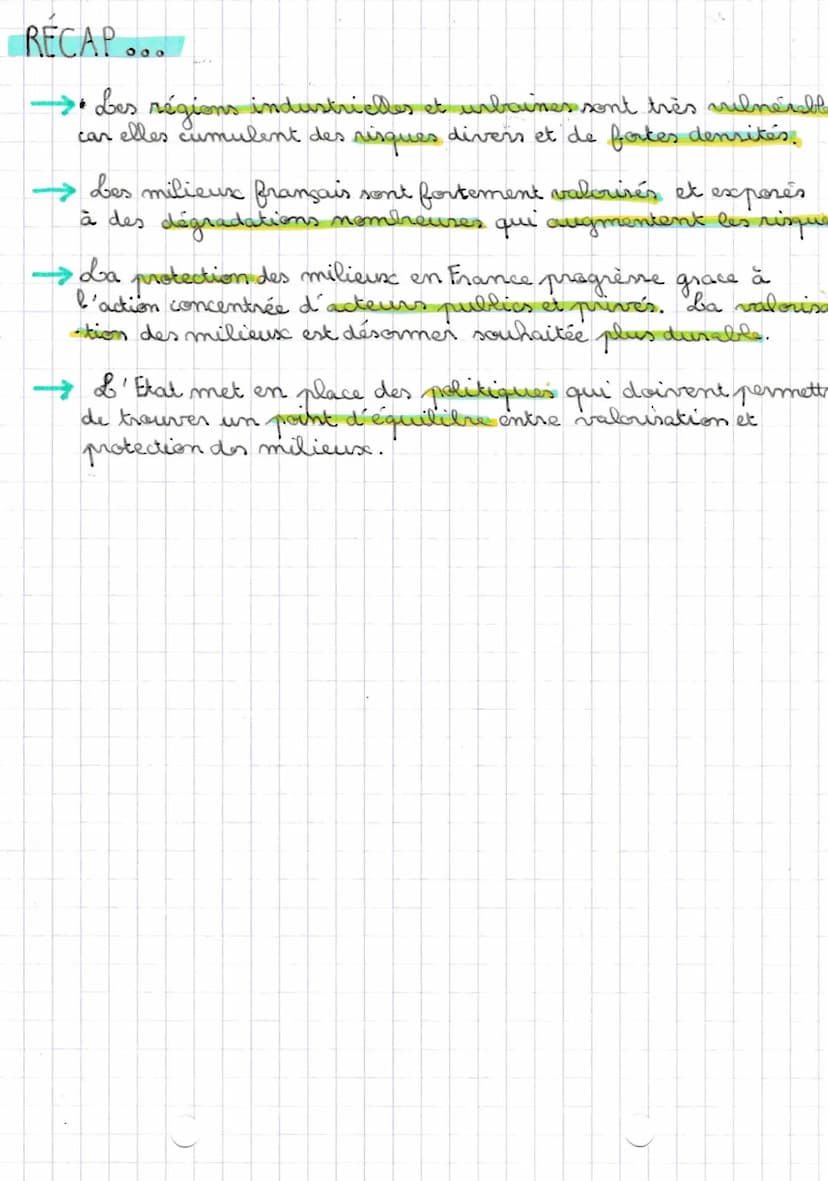 RÉCAP...
→ • Les régions industrielles et urbaines sont très vulnérable
car elles cumulent des risques divers et de fortes densités.
→ Les milieux français sont fortement valorisés et exposés
à des dégradations nombreuses qui augmentent les risque
→ La protection des milieux en France progresse grace à
l'action concentrée d'acteurs publics et privés. La valorisa
-tion des milieux est désormer souhaitée plus durable.
→ L'Etat met en place des politiques qui doivent permettr
de trouver un point d'équilibre entre valorisation et
protection des milieux.